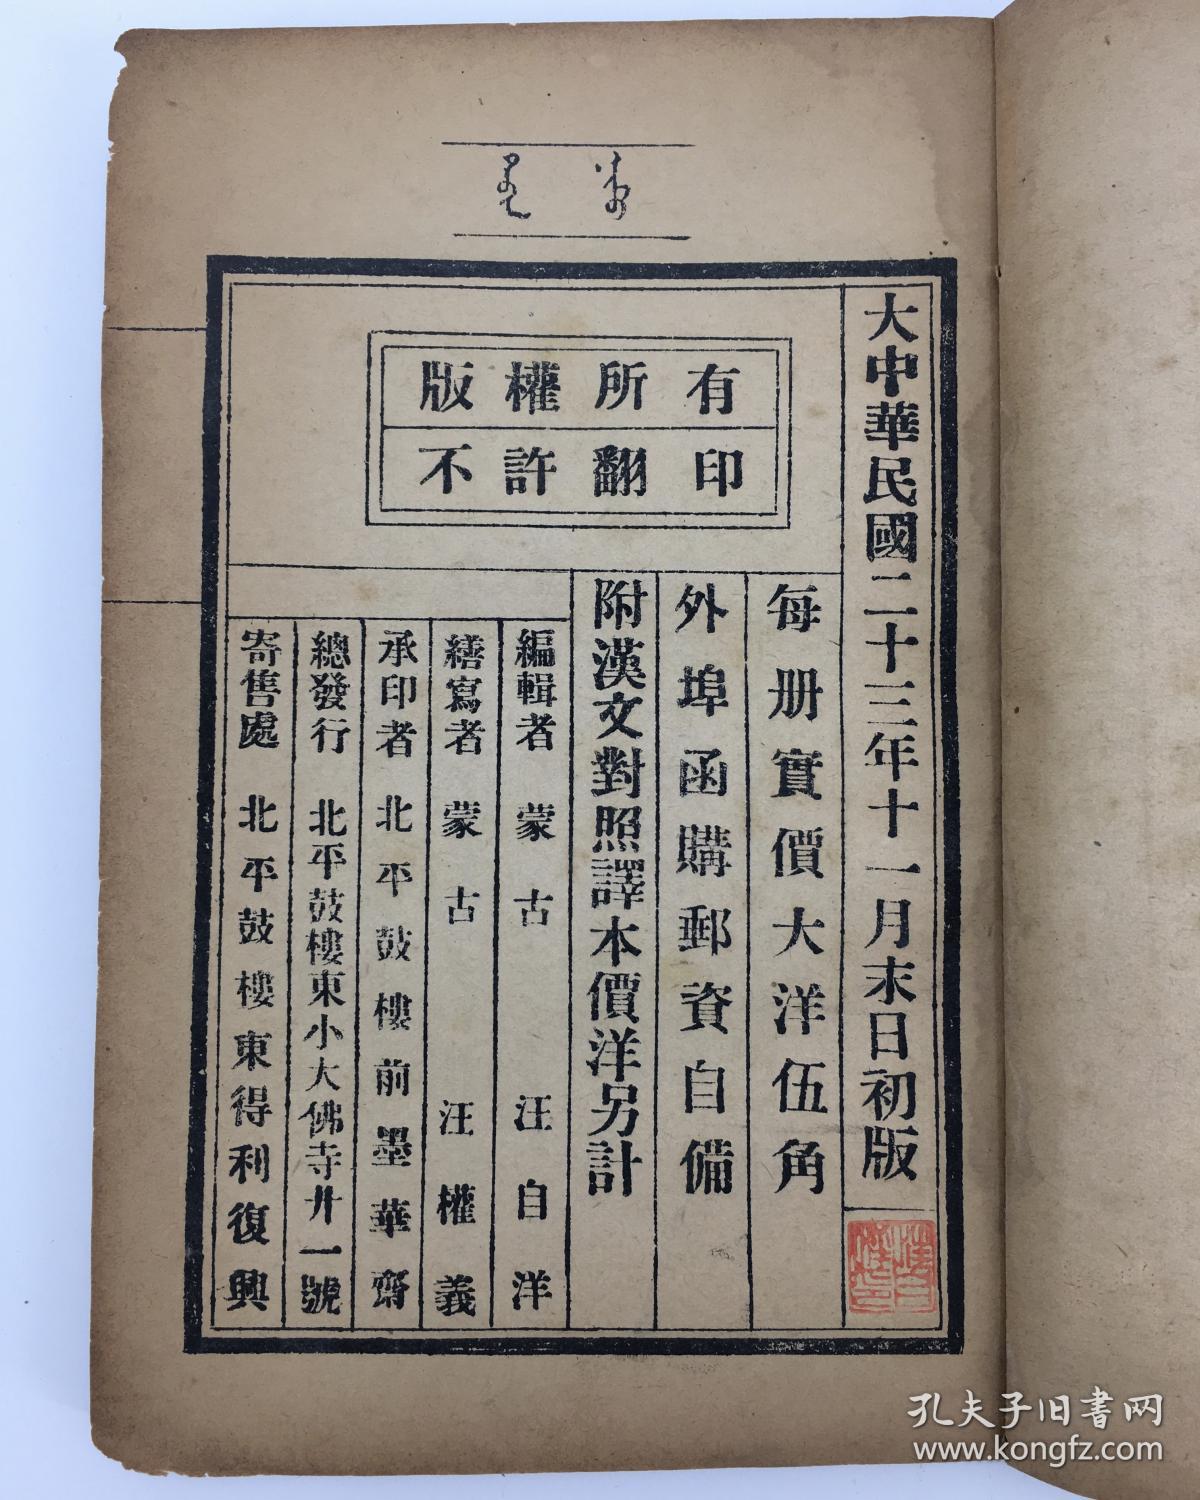 大中華民國二十三年十一月末日初版
每册實價大洋伍角
外埠函購郵資自備
附漢文對照譯本價洋另計
版權所有
不許翻印
編輯者 蒙古 汪自洋
繕寫者 蒙古 汪權義
承印者 北平鼓樓前墨華齋
總發行 北平鼓樓東小大佛寺廿一號
寄售處 北平鼓樓東得利復興
孔夫子旧書网
www.kongfz.com